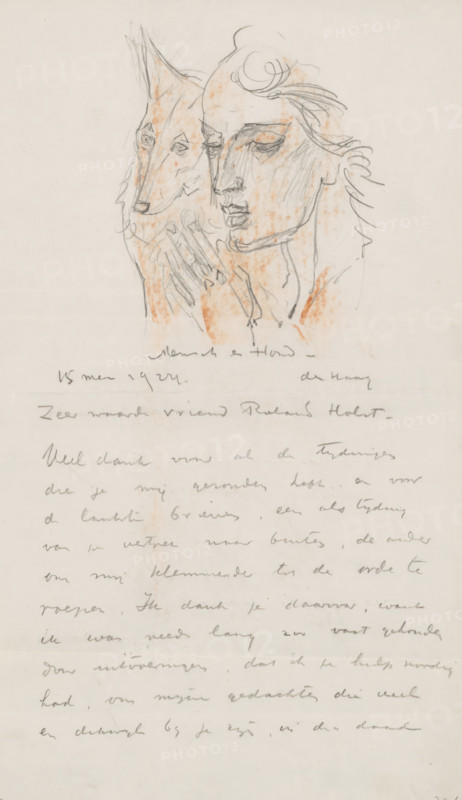 Mensch en Hond -
15 mei 1924. den Haag
Zeer waarde vriend Roland Holst -
Veel dank voor al de tijdingen
die je mij gezonden hebt en voor
de laatste brieven, een als tijding
van je vertrek naar buiten, de ander
om mij klemmende tot de orde te
roepen. Ik dank je daarvoor, want
ik was reeds lang zoo vast gehouden
door uitvoeringen, dat ik je hulp noodig
had, om mijne gedachten die veel
en dikwijls bij je zijn, in die daad